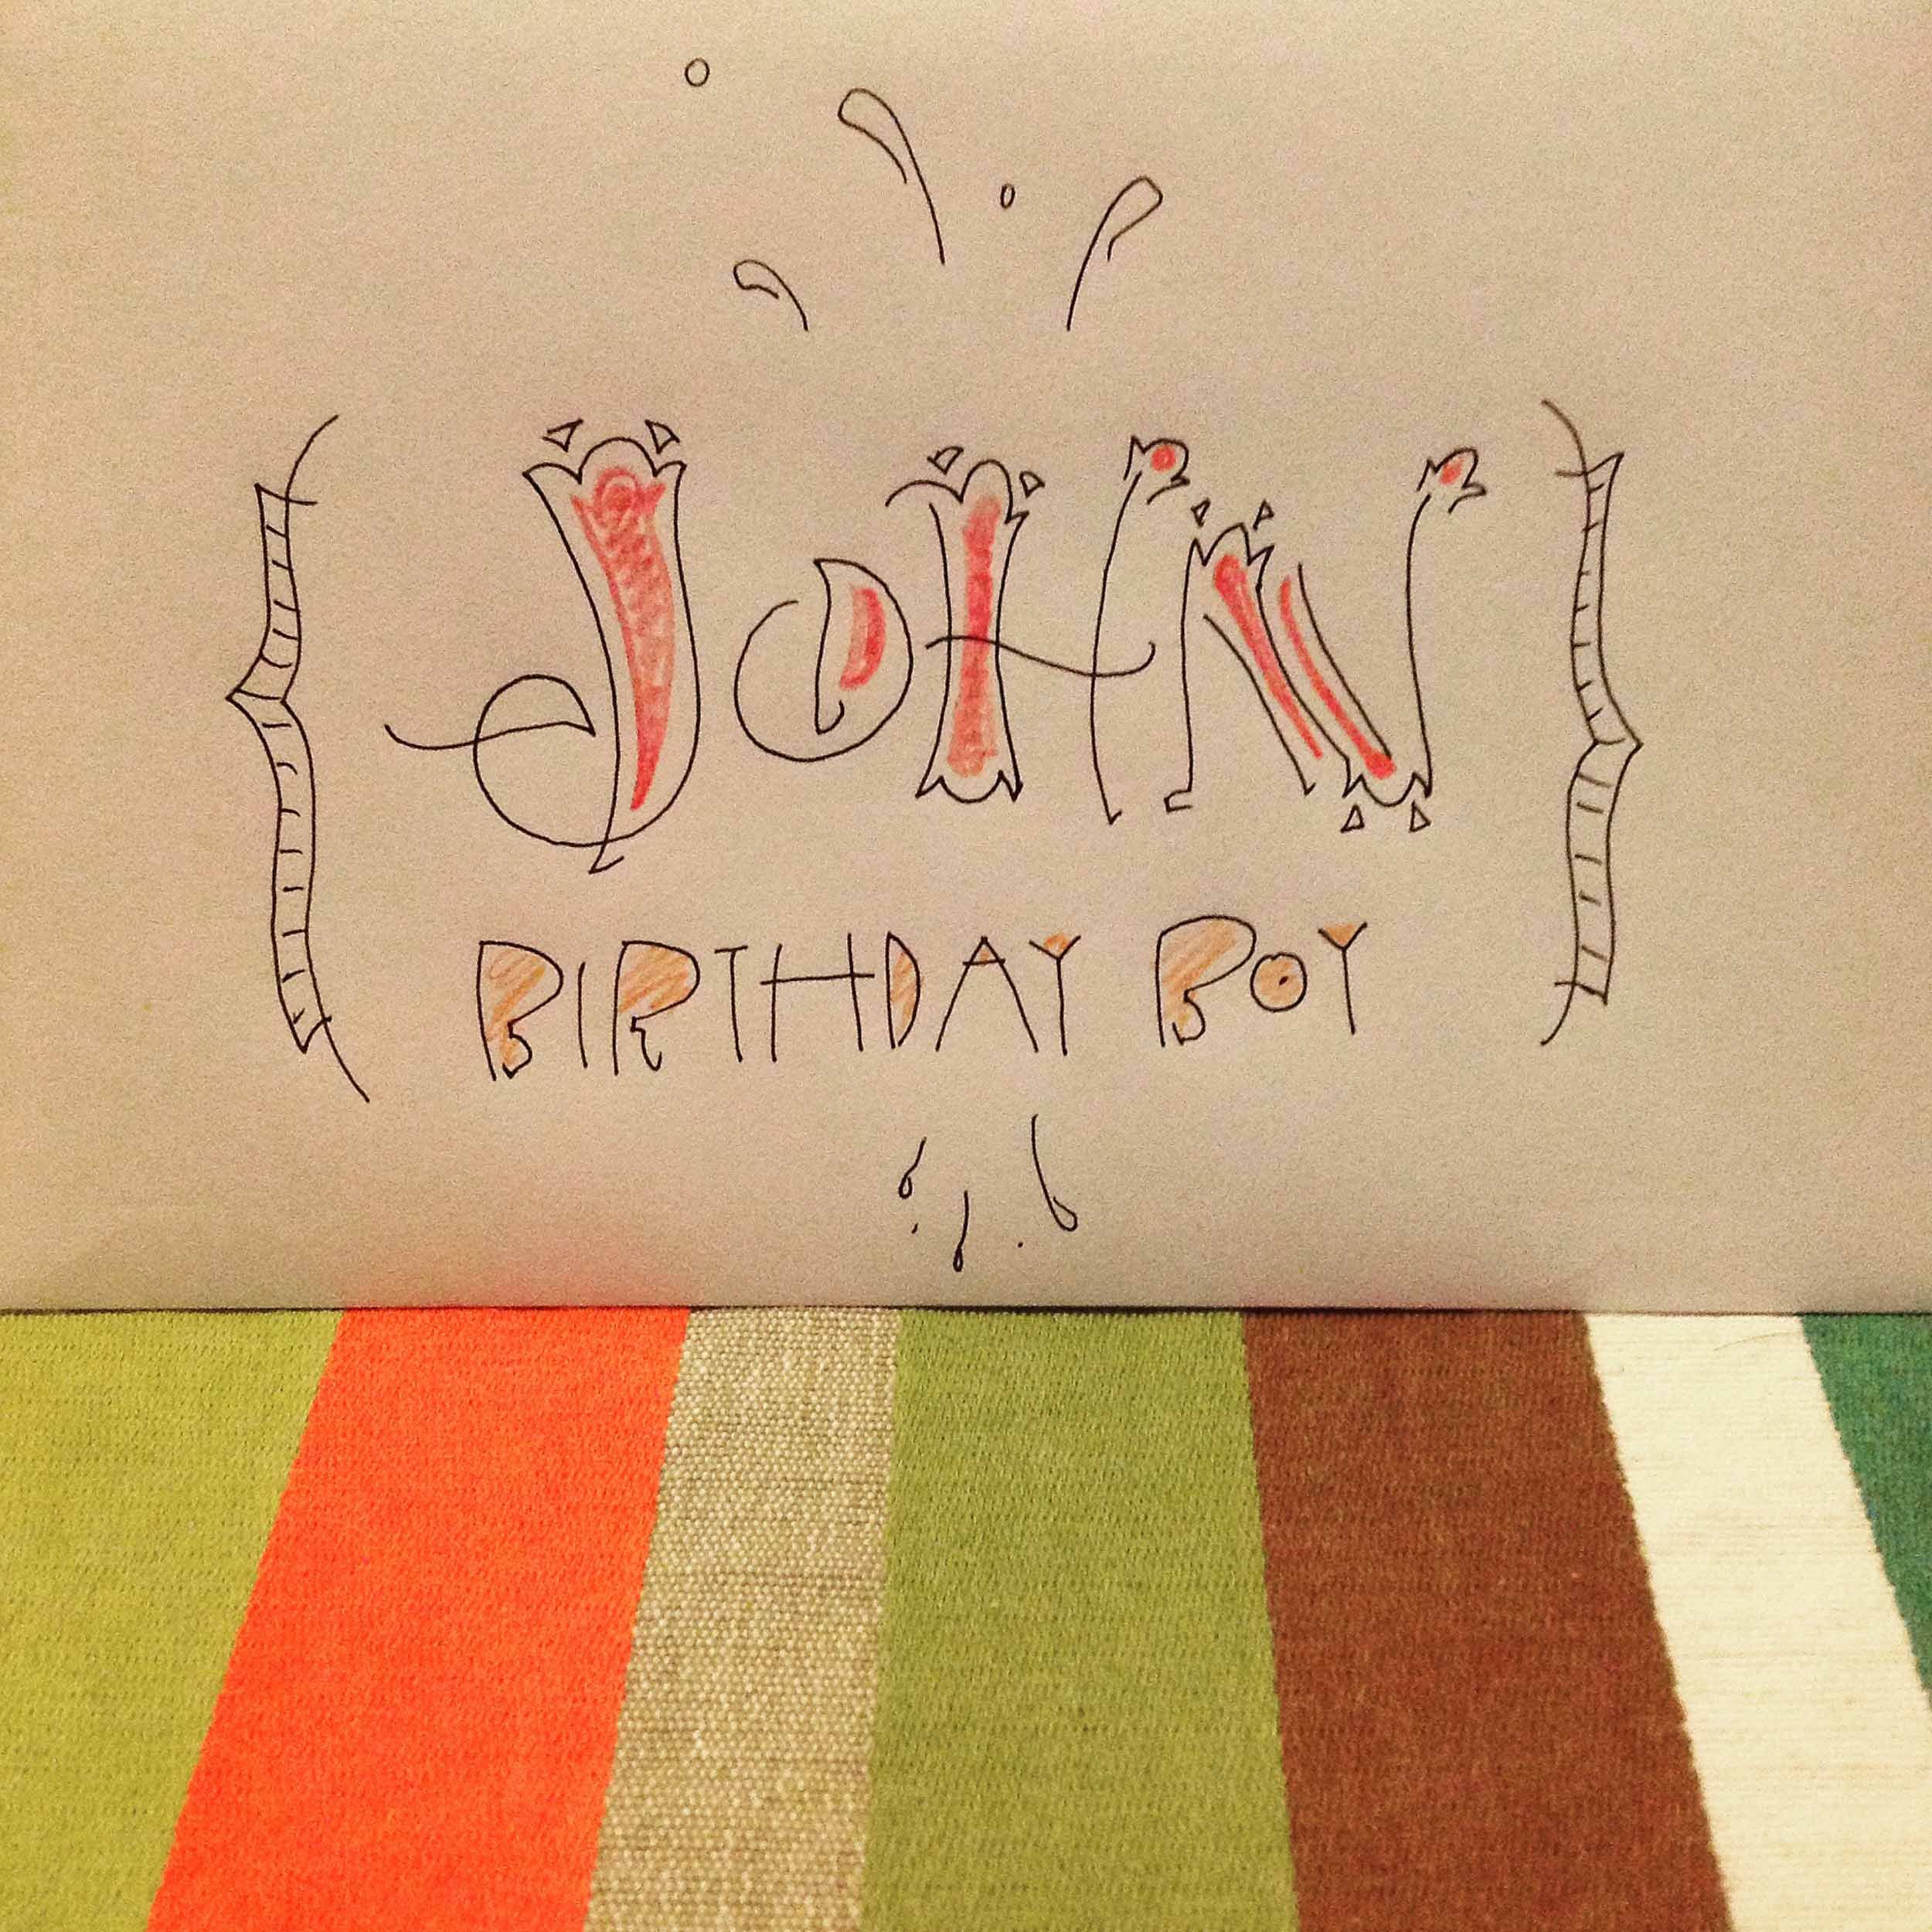 JOHN
BIRTHDAY BOY